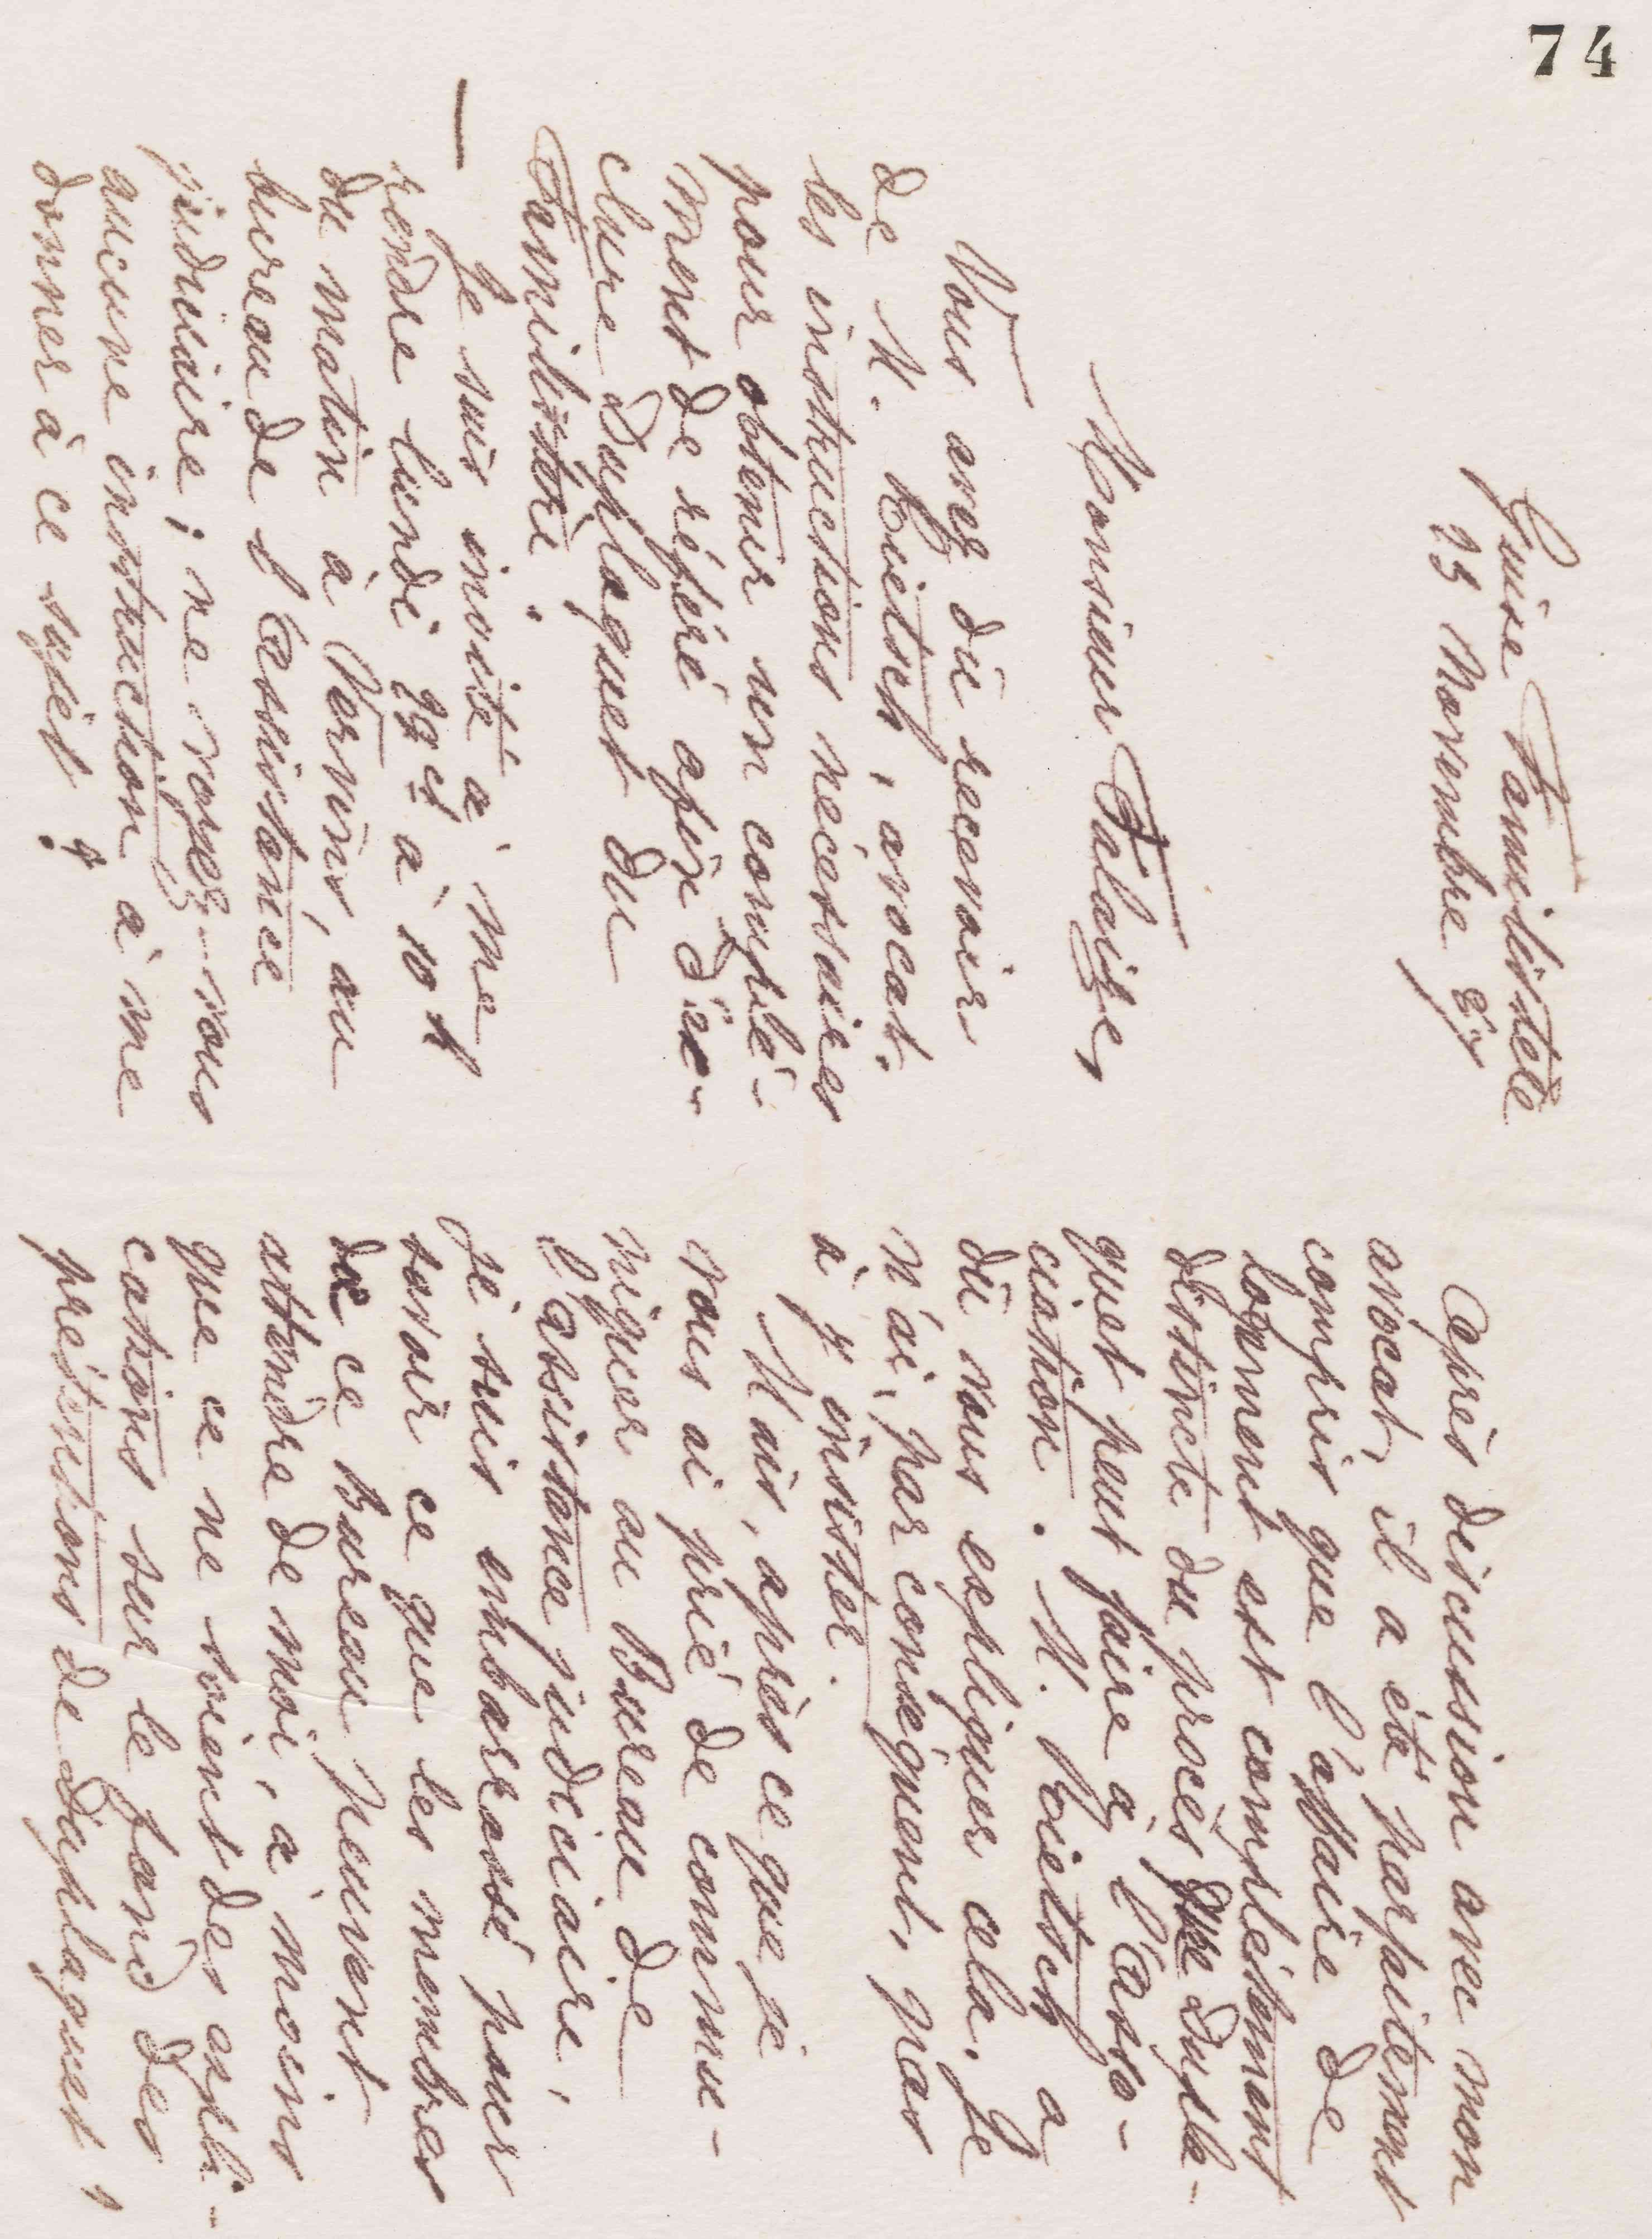 74
Guise Familistère
23 Novembre 87
Monsieur Falaize,
Vous avez dû recevoir
de M. Piettch, avocat,
les instructions nécessaires
pour obtenir un complé-
ment de référé afin d'ex-
clure Duplaquet du
Familistère.
— Je suis invité à me
rendre lundi 28 ct à 10 h
du matin à Vervins, au
bureau de l'assistance
judiciaire ; ne voyez-vous
aucune instruction à me
donner à ce sujet ?
Après discussion avec mon
avocat, il a été parfaitement
compris que l'affaire de
logement est complètement
distincte du procès que Dupla-
quet peut faire à l'Asso-
ciation. M. Piettch a
dû vous expliquer cela. Je
n'ai, par conséquent, pas
à y insister.
Mais, après ce que je
vous ai prié de commu-
niquer au Bureau de
l'assistance judiciaire,
je suis embarrassé pour
savoir ce que les membres
de ce bureau peuvent
attendre de moi, à moins
que ce ne soient des expli-
cations sur le fond des
prétentions de Duplaquet,